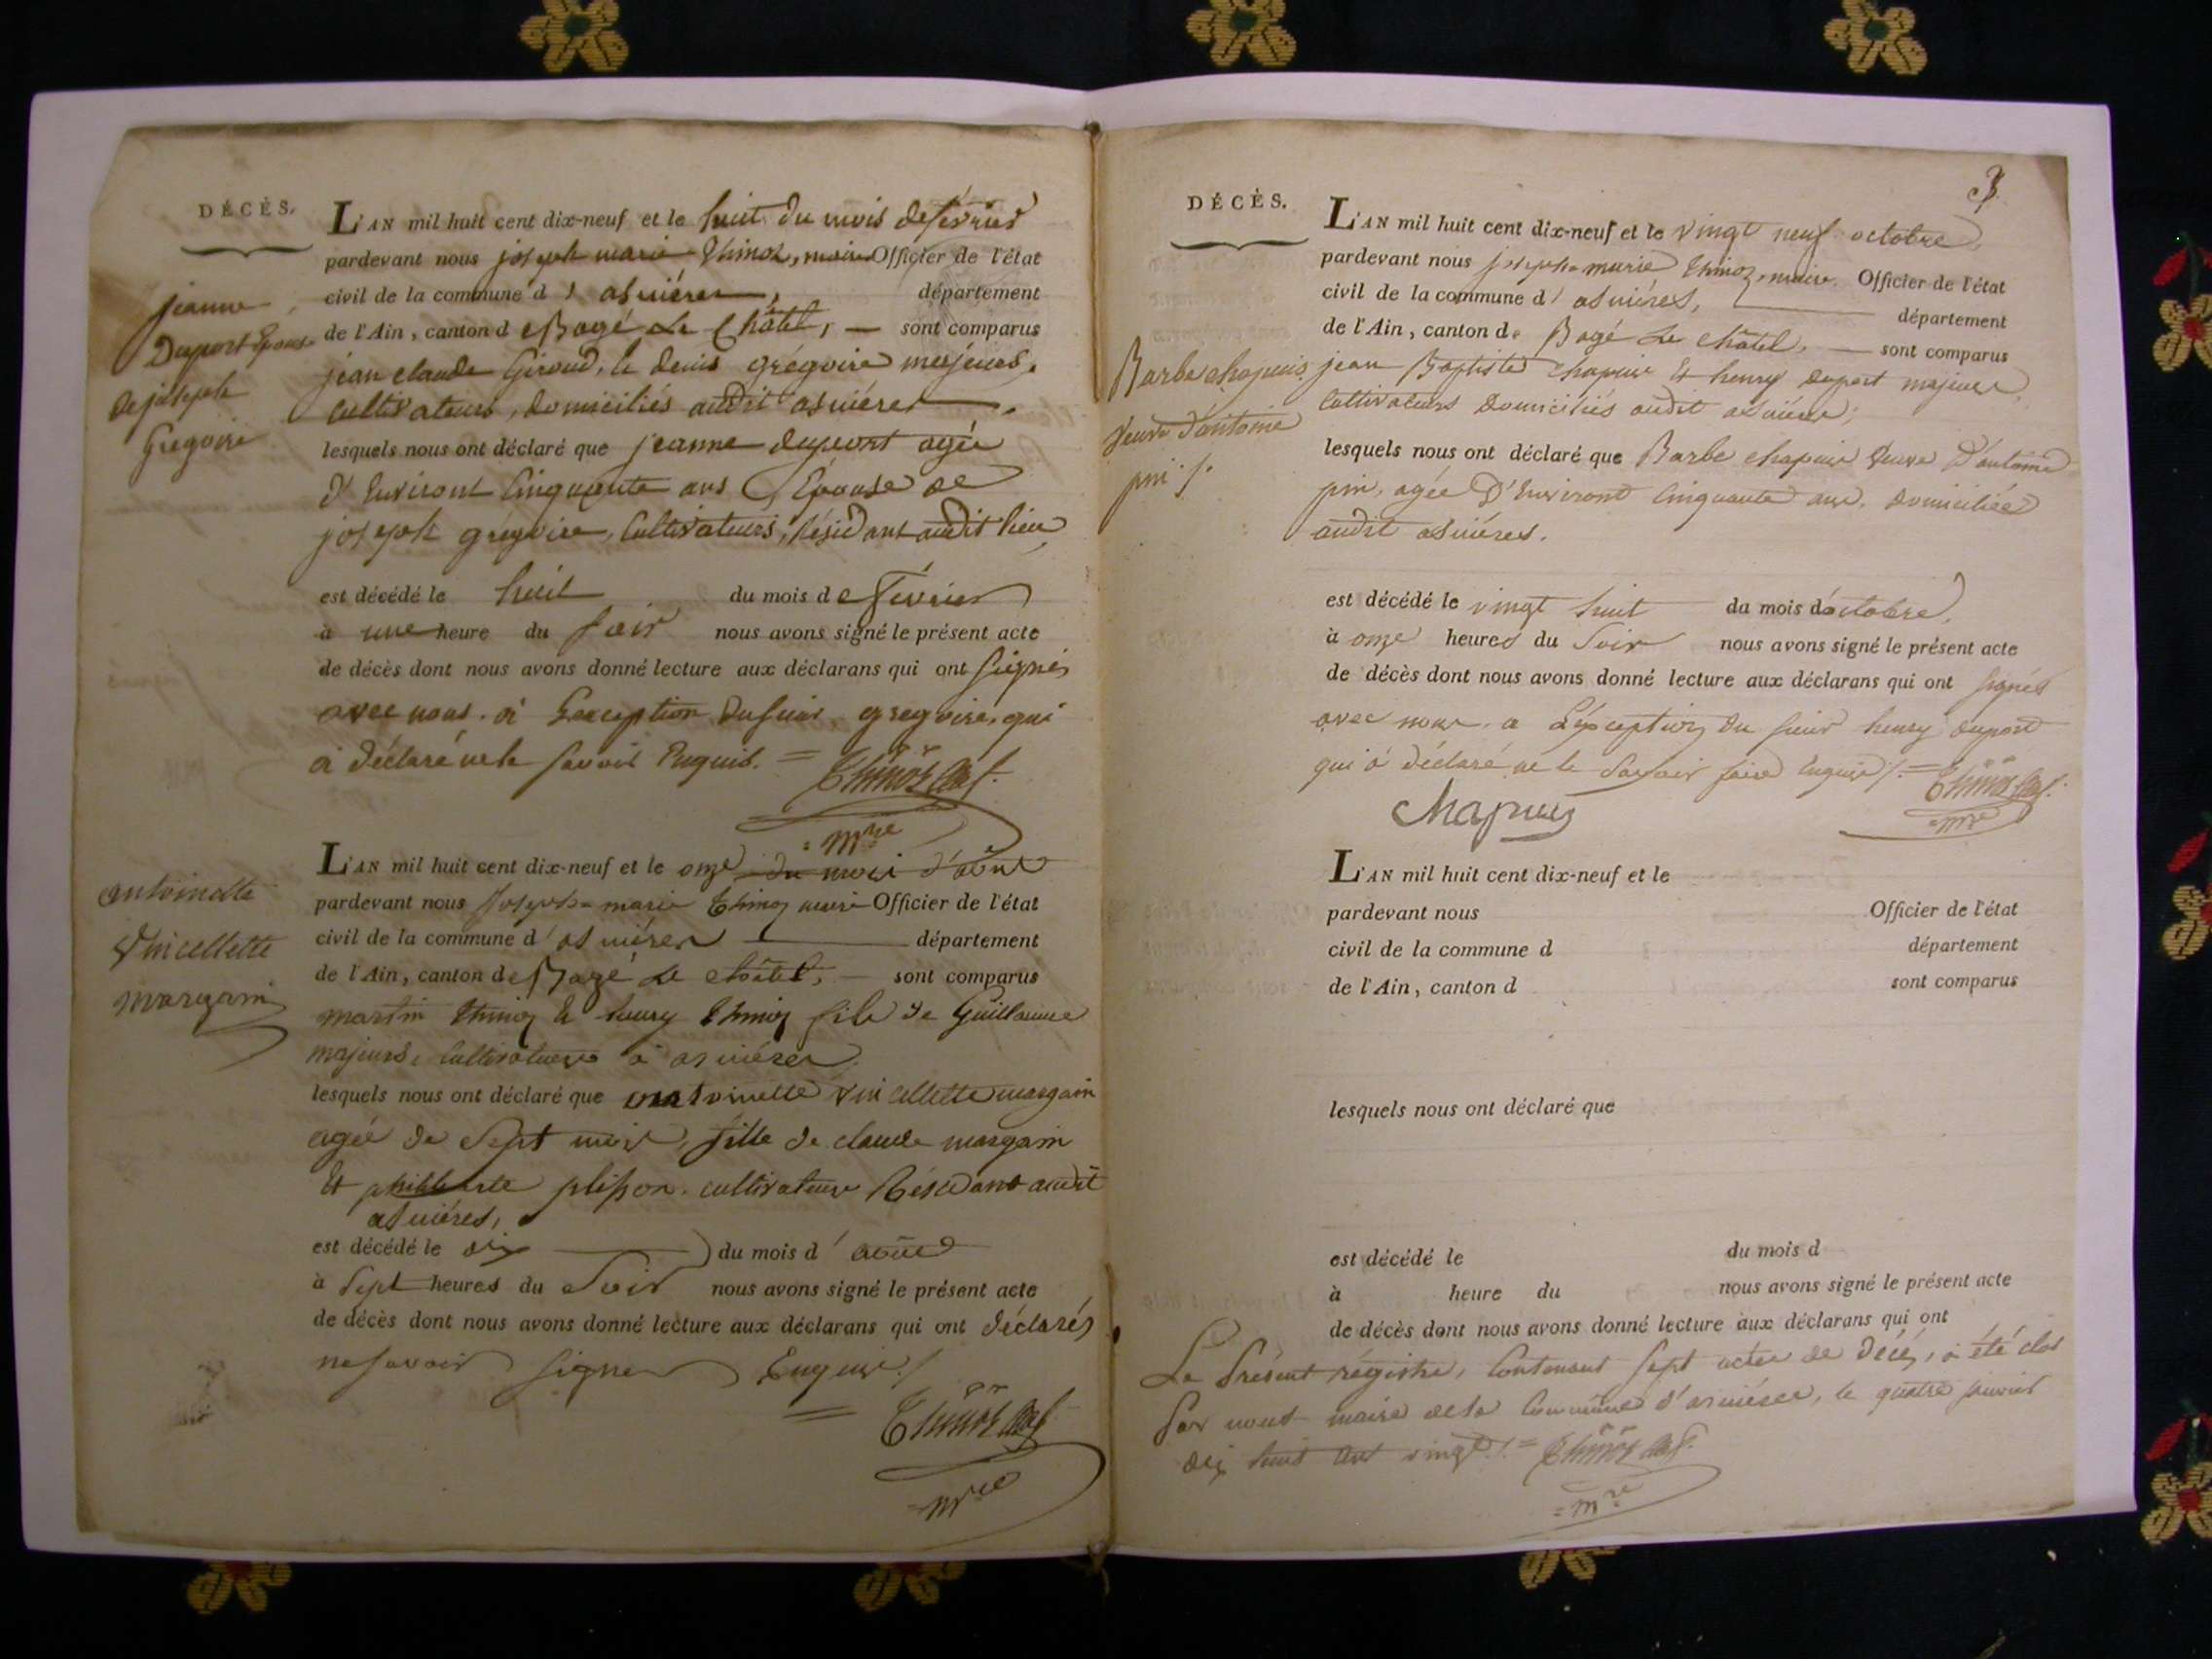 DÉCÈS.
jeanne
Duport Epouse
de joseph
Gregoire
L'AN mil huit cent dix-neuf et le huit du mois de février
pardevant nous joseph marie Thinoz, maire Officier de l'état
civil de la commune d'asniéres, département
de l'Ain, canton de Bagé Le Châtel, sont comparus
jean claude Giroud, & denis grégoire majeurs,
cultivateurs, domiciliés audit asniéres.
lesquels nous ont déclaré que jeanne duport agée
d'Environt Cinquante ans Epouse de
joseph grégoire, Cultivateurs, Résidant audit lieu
est décédé le huit du mois de Février
à une heure du soir nous avons signé le présent acte
de décès dont nous avons donné lecture aux déclarans qui ont signés
avec nous. à L'exception du sieur gregoire, qui
à déclaré ne le savoir Enquis. =
Thinoz
= mre
antoinette
Vincellette
margain
L'AN mil huit cent dix-neuf et le onze du mois d'août
pardevant nous Joseph-marie Thinoz maire Officier de l'état
civil de la commune d'asniéres département
de l'Ain, canton de Bagé Le châtel, sont comparus
martin Thinoz & henry Thinoz fils de Guillaume
majeurs, Cultivateurs à asniéres
lesquels nous ont déclaré que antoinette vincellette margain
agée de Sept mois, fille de claude margain
Et philiberte plisson. cultivateurs Résidant audit
asniéres,
est décédé le dix du mois d'août
à Sept heures du Soir nous avons signé le présent acte
de décès dont nous avons donné lecture aux déclarans qui ont déclarés
ne savoir signer Enquis /.
= Thinoz
= mre
3
DÉCÈS.
Barbe chapuis
Veuve d'antoine
pin /.
L'AN mil huit cent dix-neuf et le vingt neuf octobre,
pardevant nous joseph-marie Thinoz, maire. Officier de l'état
civil de la commune d'asniéres, département
de l'Ain, canton de Bagé Le châtel, sont comparus
jean Baptiste Chapuis & henry duport majeurs,
Cultivateurs Domiciliés audit asniéres;
lesquels nous ont déclaré que Barbe chapuis Veuve D'antoine
pin, agée D'Environt Cinquante ans. domiciliée
audit asniéres.
est décédé le vingt huit du mois d'octobre,
à onze heures du Soir nous avons signé le présent acte
de décès dont nous avons donné lecture aux déclarans qui ont signés
avec nous. a L'exception du sieur henry duport
qui à déclaré ne le Savoir faire Enquis /. = Thinoz
Chapuis
= mre
L'AN mil huit cent dix-neuf et le
pardevant nous Officier de l'état
civil de la commune d département
de l'Ain, canton d sont comparus
lesquels nous ont déclaré que
est décédé le du mois d
à heure du nous avons signé le présent acte
de décès dont nous avons donné lecture aux déclarans qui ont
Le Présent régistre, Contenant sept actes de décès, à été clos
Par nous maire de la Commune d'asniéres, le quatre janvier
dix huit cent vingt /. = Thinoz
= mre